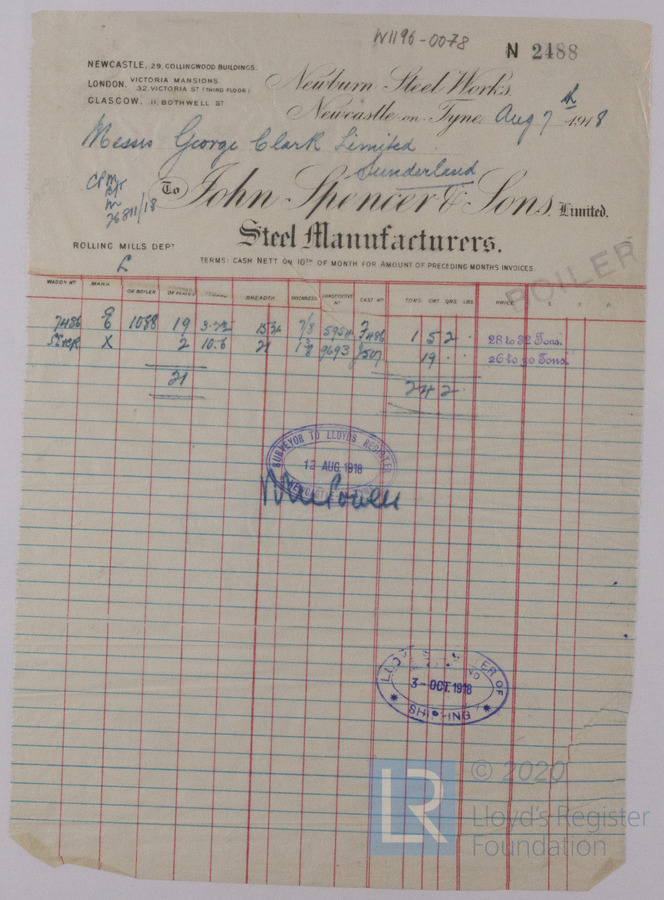 W1196-0078
N 2488
NEWCASTLE, 29, COLLINGWOOD BUILDINGS.
LONDON, VICTORIA MANSIONS.
32, VICTORIA ST (THIRD FLOOR)
GLASGOW, 11, BOTHWELL ST
Newburn Steel Works,
Newcastle-on-Tyne, Aug 7th 1918
Messrs George Clark Limited
Sunderland
26811/18
To John Spencer & Sons, Limited.
Steel Manufacturers.
ROLLING MILLS DEPT
TERMS: CASH NETT ON 10TH OF MONTH FOR AMOUNT OF PRECEDING MONTHS INVOICES.
BOILER
WAGON NO MARK OR BOILER BREADTH THICKNESS CAST NO TONS. CWT. QRS. LBS PRICE
7486 1088 19 7/8 7486 1 5 2 28 to 32 Tons.
X 2 10.6 21 9693 19 26 to 30 Tons.
21 2 4 2
SURVEYOR TO LLOYDS REGISTER
12 AUG. 1918
NEWCASTLE
LLOYD'S REGISTER OF
3-OCT. 1918
SHIPPING
LR
© 2020
Lloyd's Register
Foundation